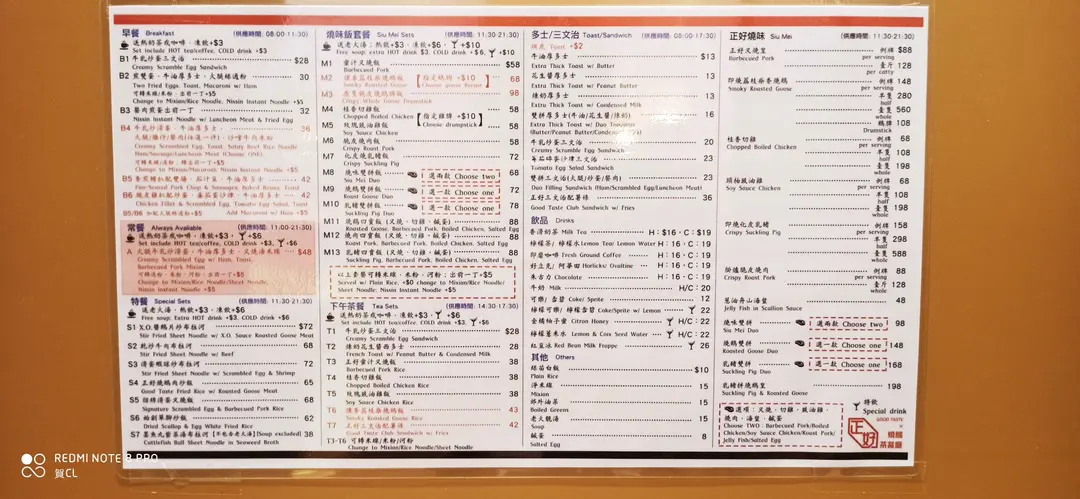 早餐 Breakfast (供應時間: 08:00-11:30)
送熱奶茶或咖啡，凍飲+$3
Set include HOT tea/coffee, COLD drink +$3
B1 牛乳炒蛋三文治 $28
Creamy Scrambled Egg Sandwich
B2 煎雙蛋，牛油厚多士，火腿絲通粉 30
Fried Two Eggs, Toast, Macaroni w/ Ham
可轉米線/米粉，出前一丁 +$5
Change to Mixian/Rice Noodle, Nissin Instant Noodle +$5
B3 餐肉煎蛋出前一丁 32
Nissin Instant Noodle w/ Luncheon Meat & Fried Egg
B4 36
Creamy Scrambled Egg, Toast, Satay Beef Rice Noodle
Ham/Sausage/Luncheon Meat (Choose ONE)
Change to Mixian/Macaroni, Nissin Instant Noodle +$5
B5 42
B6 42
Chicken Fillet & Scrambled Egg, Tomato Egg Salad, Toast
B5/B6 加配火腿絲通粉+$5 Add Macaroni w/ Ham +$5
常餐 Always Available (供應時間: 11:00-21:30)
送熱奶茶或咖啡，凍飲+$3，+$6
Set include HOT tea/coffee, COLD drink +$3, +$6
A 火腿牛乳炒滑蛋，牛油厚多士，叉燒湯米線 $48
Creamy Scrambled Egg w/ Ham, Toast,
Barbecued Pork Mixian
可轉通粉，米粉，河粉；出前一丁+$5
Change to Macaroni/Rice Noodle/Sheet Noodle,
Nissin Instant Noodle +$5
特餐 Special Sets (供應時間: 11:30-21:30)
送老火湯，凍飲+$3，+$6
Free soup: Extra HOT drink +$3, COLD drink +$6
S1 X.O.醬鵝片炒布拉河 $72
Stir Fried Sheet Noodle w/ X.O. Sauce Roasted Goose Meat
S2 乾炒牛肉布拉河 68
Stir Fried Sheet Noodle w/ Beef
S3 滑蛋蝦球炒布拉河 68
Stir Fried Sheet Noodle w/ Scrambled Egg & Shrimp
S4 正好燒鵝肉炒飯 65
Good Taste Fried Rice w/ Roasted Goose Meat
S5 招牌滑蛋叉燒飯 68
Signature Scrambled Egg & Barbecued Pork Rice
S6 柚創單腳炒飯 62
Dried Scallop & Egg White Fried Rice
S7 墨魚丸紫菜湯布拉河【不包含老火湯】[Soup excluded] 38
Cuttlefish Ball Sheet Noodle in Seaweed Broth
燒味飯套餐 Siu Mei Sets (供應時間: 11:30-21:30)
送老火湯；熱飲+$3，凍飲+$6，+$10
Free soup: extra HOT drink $3, COLD drink +$6, +$10
M1 蜜汁叉燒飯 $58
Barbecued Pork
M2 68
Smoky Roasted Goose
【指定鵝髀 +$10 Change goose Breast】
M3 98
Crispy Whole Goose Drumstick
M4 桂香切雞飯 58
Chopped Boiled Chicken
【指定雞髀 +$10 Choose drumstick】
M5 玫瑰豉油雞飯 58
Soy Sauce Chicken
M6 脆皮燒肉飯 58
Crispy Roast Pork
M7 化皮燒乳豬飯 72
Crispy Suckling Pig
M8 燒味雙拼飯 選兩款 Choose two 68
Siu Mei Duo
M9 燒鵝雙拼飯 選一款 Choose one 72
Roast Goose Duo
M10 乳豬雙拼飯 選一款 Choose one 78
Suckling Pig Duo
M11 燒鵝四寶飯 (叉燒，切雞，鹹蛋) 88
Roasted Goose, Barbecued Pork, Boiled Chicken, Salted Egg
M12 燒肉四寶飯 (叉燒，切雞，鹹蛋) 88
Roast Pork, Barbecued Pork, Boiled Chicken, Salted Egg
M13 乳豬四寶飯 (叉燒，切雞，鹹蛋) 88
Suckling Pig, Barbecued Pork, Boiled Chicken, Salted Egg
以上套餐可轉米線，米粉，河粉；出前一丁+$5
Served w/ Plain Rice, +$0 change to Mixian/Rice Noodle/
Sheet Noodle; Nissin Instant Noodle +$5
下午茶餐 Tea Sets (供應時間: 14:30-17:30)
送熱奶茶或咖啡，凍飲+$3，+$6
Set include HOT tea/coffee, COLD drink +$3, +$6
T1 牛乳炒蛋三文治 $28
Creamy Scrambled Egg Sandwich
T2 煉奶花生醬西多士 28
French Toast w/ Peanut Butter & Condensed Milk
T3 正好蜜汁叉燒飯 38
Barbecued Pork Rice
T4 桂香切雞飯 38
Chopped Boiled Chicken Rice
T5 玫瑰豉油雞飯 38
Soy Sauce Chicken Rice
T6 43
Smoky Roasted Goose Rice
T7 正好三文治配薯條 42
Good Taste Club Sandwich w/ Fries
T3-T6 可轉米線/米粉/河粉
Change to Mixian/Rice Noodle/Sheet Noodle
多士/三文治 Toast/Sandwich (供應時間: 08:00-17:30)
烘底 Toast +$2
牛油厚多士 $13
Extra Thick Toast w/ Butter
花生醬厚多士 13
Extra Thick Toast w/ Peanut Butter
煉奶厚多士 13
Extra Thick Toast w/ Condensed Milk
雙拼厚多士(牛油/花生醬/煉奶) 16
Extra Thick Toast w/ Duo Toppings
(Butter/Peanut Butter/Condensed Milk)
牛乳炒蛋三文治 20
Creamy Scramble Egg Sandwich
蕃茄碎蛋沙律三文治 23
Tomato Egg Salad Sandwich
雙拼三文治(火腿/炒蛋/餐肉) 23
Duo Filling Sandwich (Ham/Scrambled Egg/Luncheon Meat)
正好三文治配薯條 36
Good Taste Club Sandwich w/ Fries
飲品 Drinks
香滑奶茶 Milk Tea H：$16・C：$19
檸檬茶/ 檸檬水 Lemon Tea/ Lemon Water H：16・C：19
即磨咖啡 Fresh Ground Coffee H：16・C：19
好立克/ 阿華田 Horlick/ Ovaltine H：16・C：19
朱古力 Chocolate H：16・C：19
牛奶 Milk H/C：20
可樂/ 雪碧 Coke/ Sprite 12
檸檬可樂/ 檸檬雪碧 Coke/Sprite w/ Lemon 22
金橘柚子蜜 Citron Honey H/C：22
檸檬薏米水 Lemon & Coix Seed Water H/C：22
紅豆冰 Red Bean Milk Frappe 26
其他 Others
絲苗白飯 $10
Plain Rice
淨米線 15
Mixian
郊外油菜 15
Boiled Greens
老火靚湯 15
Soup
鹹蛋 8
Salted Egg
正好燒味 Siu Mei (供應時間: 11:30-21:30)
正好叉燒皇 例牌 $88
Barbecued Pork per serving
壹斤 128
per catty
即燒荔枝柴香燒鵝 例牌 148
Smoky Roasted Goose per serving
半隻 280
half
壹隻 560
whole
鵝髀 108
Drumstick
桂香切雞 例牌 68
Chopped Boiled Chicken per serving
半隻 108
half
壹隻 198
whole
頭抽豉油雞 例牌 68
Soy Sauce Chicken per serving
半隻 108
half
壹隻 198
whole
即燒化皮乳豬 例牌 158
Crispy Suckling Pig per serving
半隻 298
half
壹隻 588
whole
掛爐脆皮燒肉 例牌 88
Crispy Roast Pork per serving
壹斤 128
蔥油舟山海蜇 48
Jelly Fish in Scallion Sauce
燒味雙拼 選兩款 Choose two 98
Siu Mei Duo
燒鵝雙拼 選一款 Choose one 148
Roasted Goose Duo
乳豬雙拼 選一款 Choose one 168
Suckling Pig Duo
乳豬拼燒鵝皇 198
Suckling Pig & Roasted Goose
選項：叉燒，切雞，豉油雞，
燒肉，海蜇，鹹蛋
Choose TWO: Barbecue Pork/Boiled
Chicken/Soy Sauce Chicken/Roast Pork/
Jelly Fish/Salted Egg
特飲
Special drink
GOOD TASTE
正好
燒臘
茶餐廳
REDMI NOTE 8 PRO
賀CL